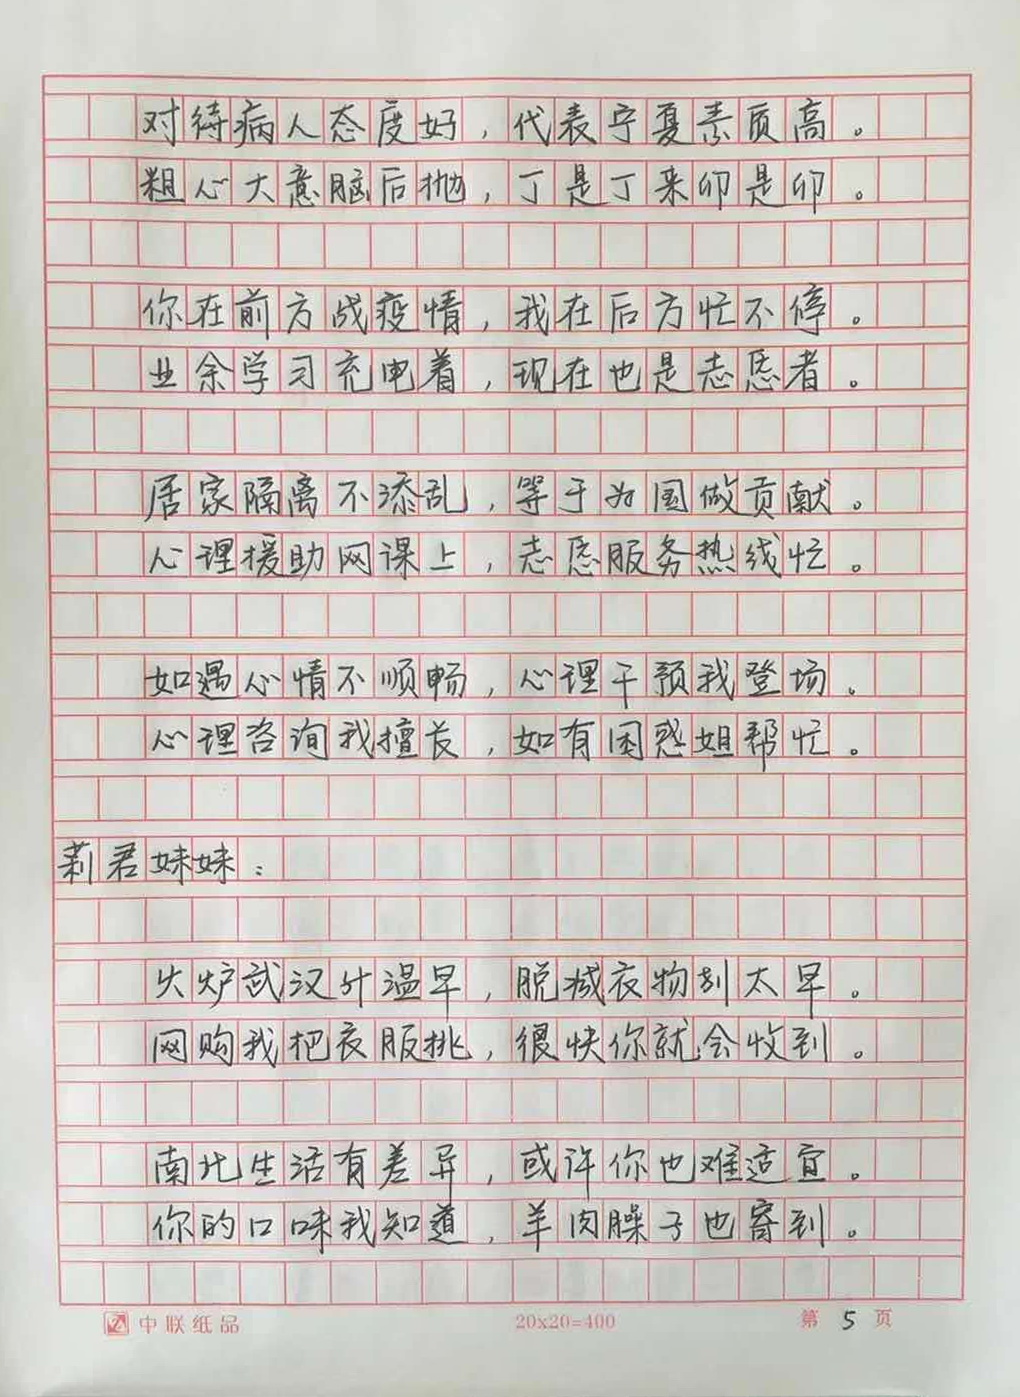 对待病人态度好，代表宁夏素质高。
粗心大意脑后抛，丁是丁来卯是卯。
你在前方战疫情，我在后方忙不停。
业余学习充电着，现在也是志愿者。
居家隔离不添乱，等于为国做贡献。
心理援助网课上，志愿服务热线忙。
如遇心情不顺畅，心理干预我登场。
心理咨询我擅长，如有困惑姐帮忙。
莉君妹妹：
火炉武汉升温早，脱减衣物别太早。
网购我把衣服挑，很快你就会收到。
南北生活有差异，或许你也难适宜。
你的口味我知道，羊肉臊子也寄到。
中联纸品 20x20=400 第 5 页